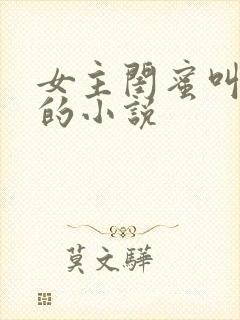 女主闺蜜叫
的小说
莫文驊